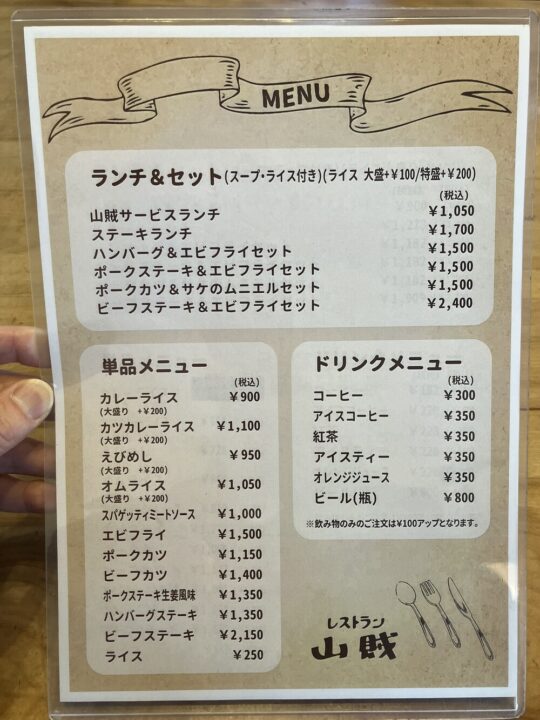 MENU
ランチ＆セット(スープ・ライス付き)(ライス 大盛+￥100/特盛+￥200)
(税込)
山賊サービスランチ ￥1,050
ステーキランチ ￥1,700
ハンバーグ＆エビフライセット ￥1,500
ポークステーキ＆エビフライセット ￥1,500
ポークカツ＆サケのムニエルセット ￥1,500
ビーフステーキ＆エビフライセット ￥2,400
単品メニュー
(税込)
カレーライス ￥900
(大盛り +￥200)
カツカレーライス ￥1,100
(大盛り +￥200)
えびめし ￥950
(大盛り +￥200)
オムライス ￥1,050
(大盛り +￥200)
スパゲッティミートソース ￥1,000
エビフライ ￥1,500
ポークカツ ￥1,150
ビーフカツ ￥1,400
ポークステーキ生姜風味 ￥1,350
ハンバーグステーキ ￥1,350
ビーフステーキ ￥2,150
ライス ￥250
ドリンクメニュー
(税込)
コーヒー ￥300
アイスコーヒー ￥350
紅茶 ￥350
アイスティー ￥350
オレンジジュース ￥350
ビール(瓶) ￥800
※飲み物のみのご注文は¥100アップとなります。
レストラン
山賊